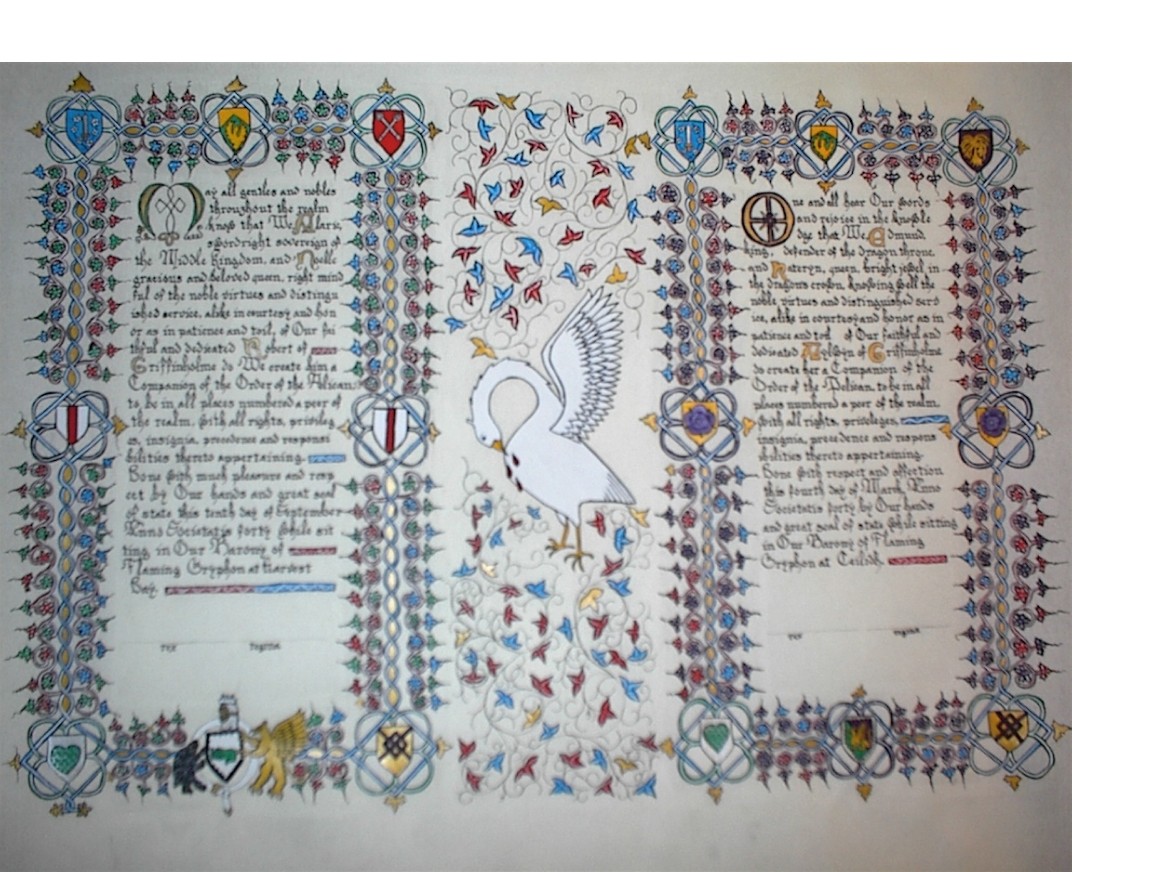 May all gentles and nobles
throughout the realm
know that We Alaric,
swordright sovereign of
the Middle Kingdom, and Noelle
gracious and beloved queen, right mind
ful of the noble virtues and distingu
ished service, alike in courtesy and hon
or as in patience and toil, of Our fai
thful and dedicated Robert of
Griffinholme do We create him a
Companion of the Order of the Pelican,
to be in all places numbered a peer of
the realm, with all rights, privileg
es, insignia, precedence and responsi
bilities thereto appertaining.
Done with much pleasure and resp
ect by Our hands and great seal
of state this tenth day of September
Anno Societatis forty while sit
ting in Our Barony of
Flaming Gryphon at Harvest
Day.
rex regina
One and all hear Our words
and rejoice in the knowle
dge that We Edmund,
king, defender of the dragon throne,
and Kateryn, queen, bright jewel in
the dragons crown, knowing well the
noble virtues and distinguished serv
ice, alike in courtesy and honor as in
patience and toil of Our faithful and
dedicated of Griffinholme
do create her a Companion of the
Order of the Pelican, to be in all
places numbered a peer of the realm,
with all rights, privileges,
insignia, precedence and respons
ibilities thereto appertaining.
Done with respect and affection
this fourth day of March Anno
Societatis forty by Our hands
and great seal of state while sitting
in Our Barony of Flaming
Gryphon at Ceilidh.
rex regina